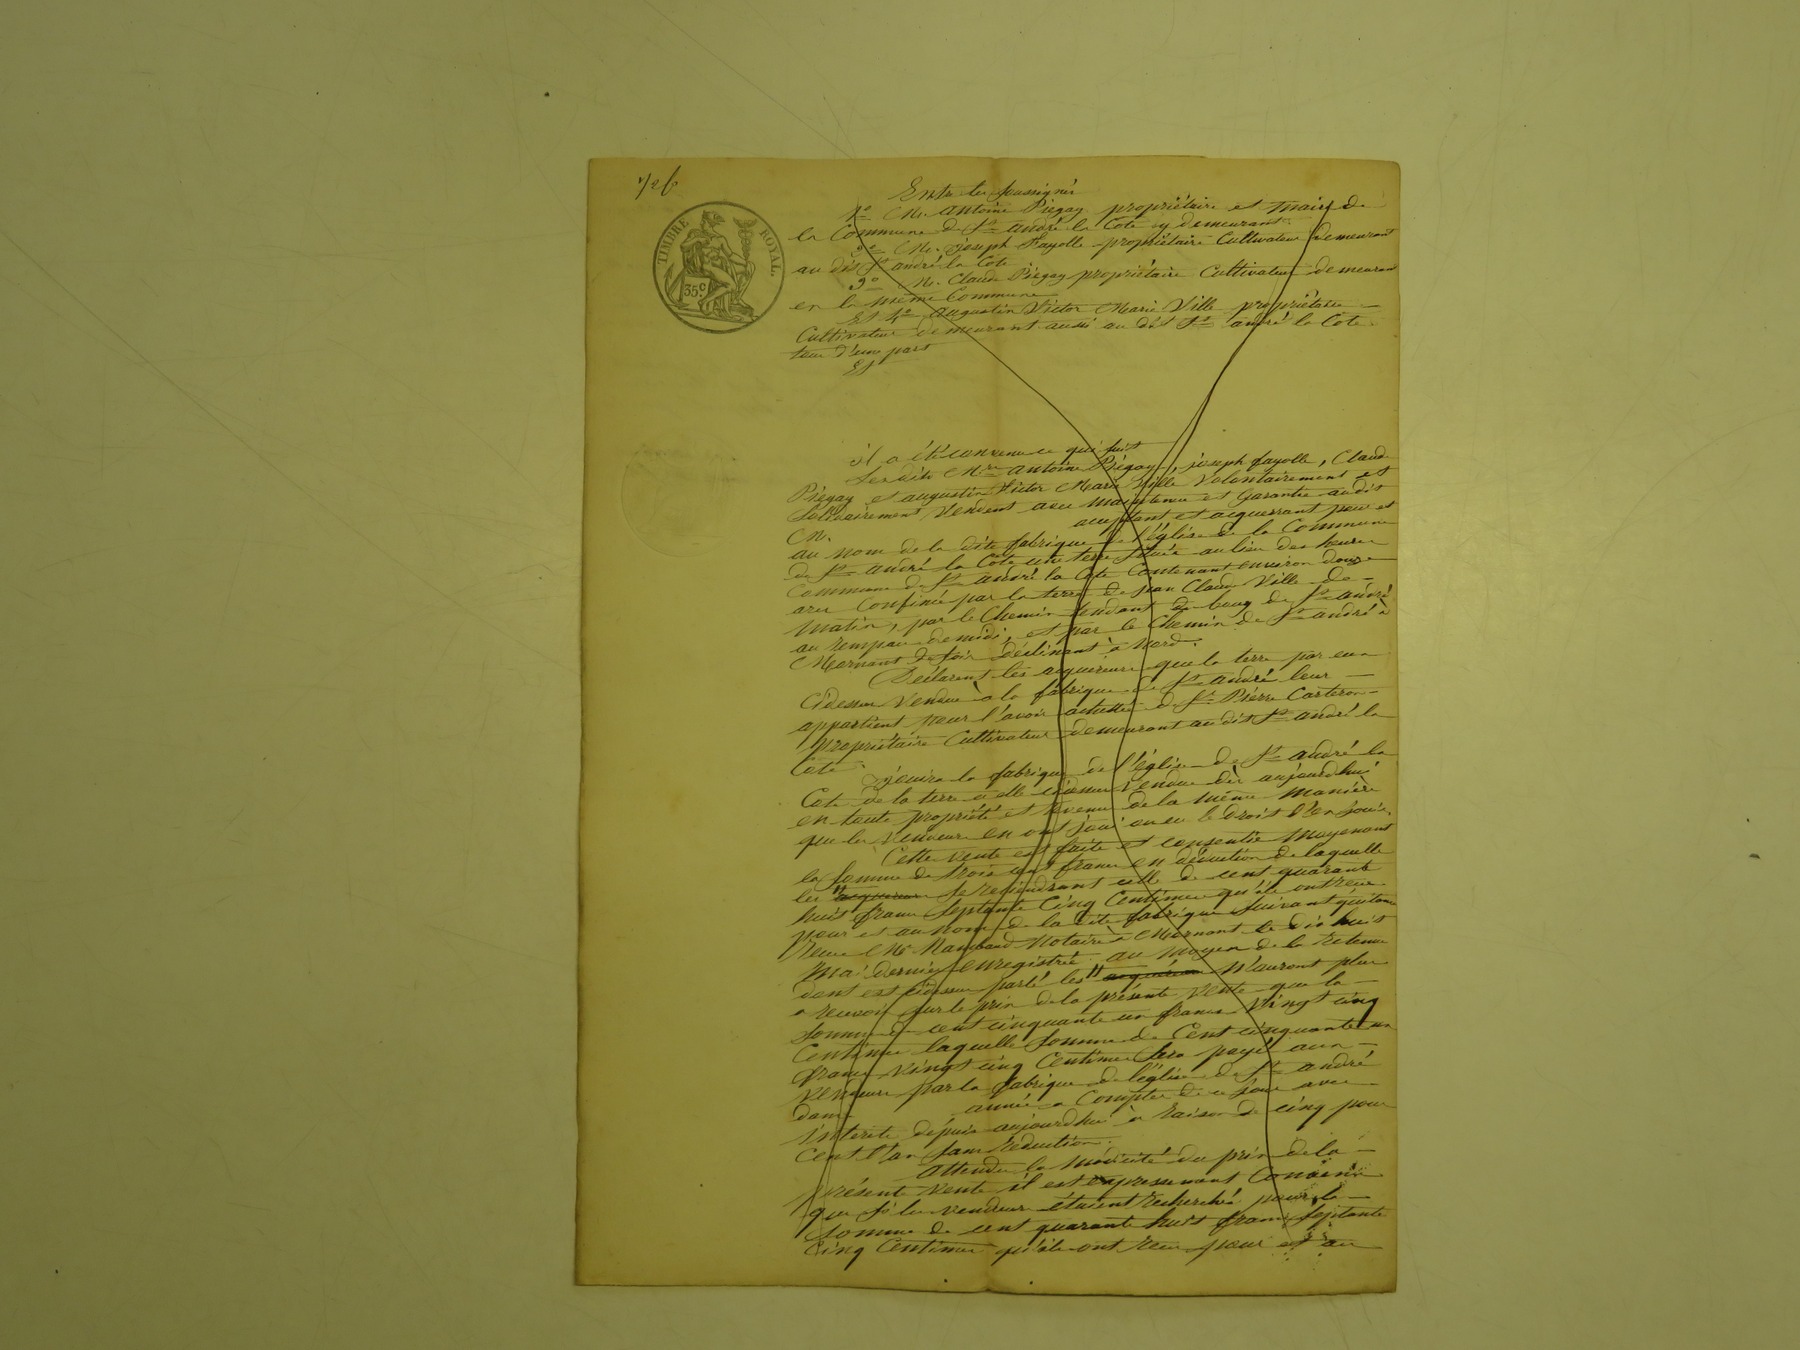 TIMBRE ROYAL.
35c
Entre les soussignés
1º Mr. Antoine Piégay propriétaire et maire de
la Commune de St andré la Cote y demeurant
2º Mr. joseph Fayolle propriétaire Cultivateur demeurant
au dit St andré la Cote
3º Mr. Claude Piégay propriétaire Cultivateur demeurant
en la même Commune
Et 4º augustin Victor Marie Ville propriétaire
Cultivateur demeurant aussi au dit St andré la Cote
tous d'une part
Et
il a été convenu ce qui suit
Les dits Mrs antoine Piégay, joseph fayolle, Claude
Piégay et augustin Victor Marie Ville Volontairement et
Solidairement, Vendent avec maintenue et Garantie audit
Mr. acceptant et acquerrant pour et
au nom de la dite fabrique de l'église de la Commune
de St andré la Cote une terre située au lieu des
Commune de St andré la Cote Contenant environ douze
ares Confinée par la terre de jean Claude Ville de
Matin, par le Chemin tendant du bourg de St andré
au de midi, et par le Chemin de St andré à
Mornant de soir déclinant à Nord.
Déclarent les acquereurs que la terre par eux
cidessus Vendue à la fabrique de St andré leur
appartient pour l'avoir achettée de Sr Pierre Carteron
propriétaire Cultivateur demeurant au dit St andré la
Cote.
jouira la fabrique de l'église de St andré la
Cote de la terre à elle cidessus Vendue dès aujourdhui
en toute propriété et revenu de la même manière
que les Vendeurs en ont joui ou eu le droit d'en jouir.
Cette vente est faite et consentie moyenant
la somme de trois cents francs en déduction de laquelle
les acquereurs se retiendront celle de cent quarante
huit francs septante cinq Centimes qu'ils ont reçu
pour et au nom de la dite fabrique suivant quittance
Reçue Me Notaire à Mornant le dix huit
Mai dernier enregistrée. au moyen de la retenue
dont est cidessus parlé les acquéreurs n'auront plus
a recevoir sur le prix de la présente Vente que la
somme de cent cinquante un francs Vingt cinq
Centimes laquelle somme de Cent cinquante un
francs Vingt cinq Centimes sera payée aux
Vendeurs par la fabrique de l'église de St andré
dans année a Compter de ce jour avec
intérêts depuis aujourdhui à raison de cinq pour
Cent l'an sans réduction.
attendu la modicité du prix de la
présente Vente il est expressement Convenu
que si les vendeurs étaient recherchés pour la
somme de cent quarante huit francs septante
Cinq Centimes qu'ils ont reçu pour et au